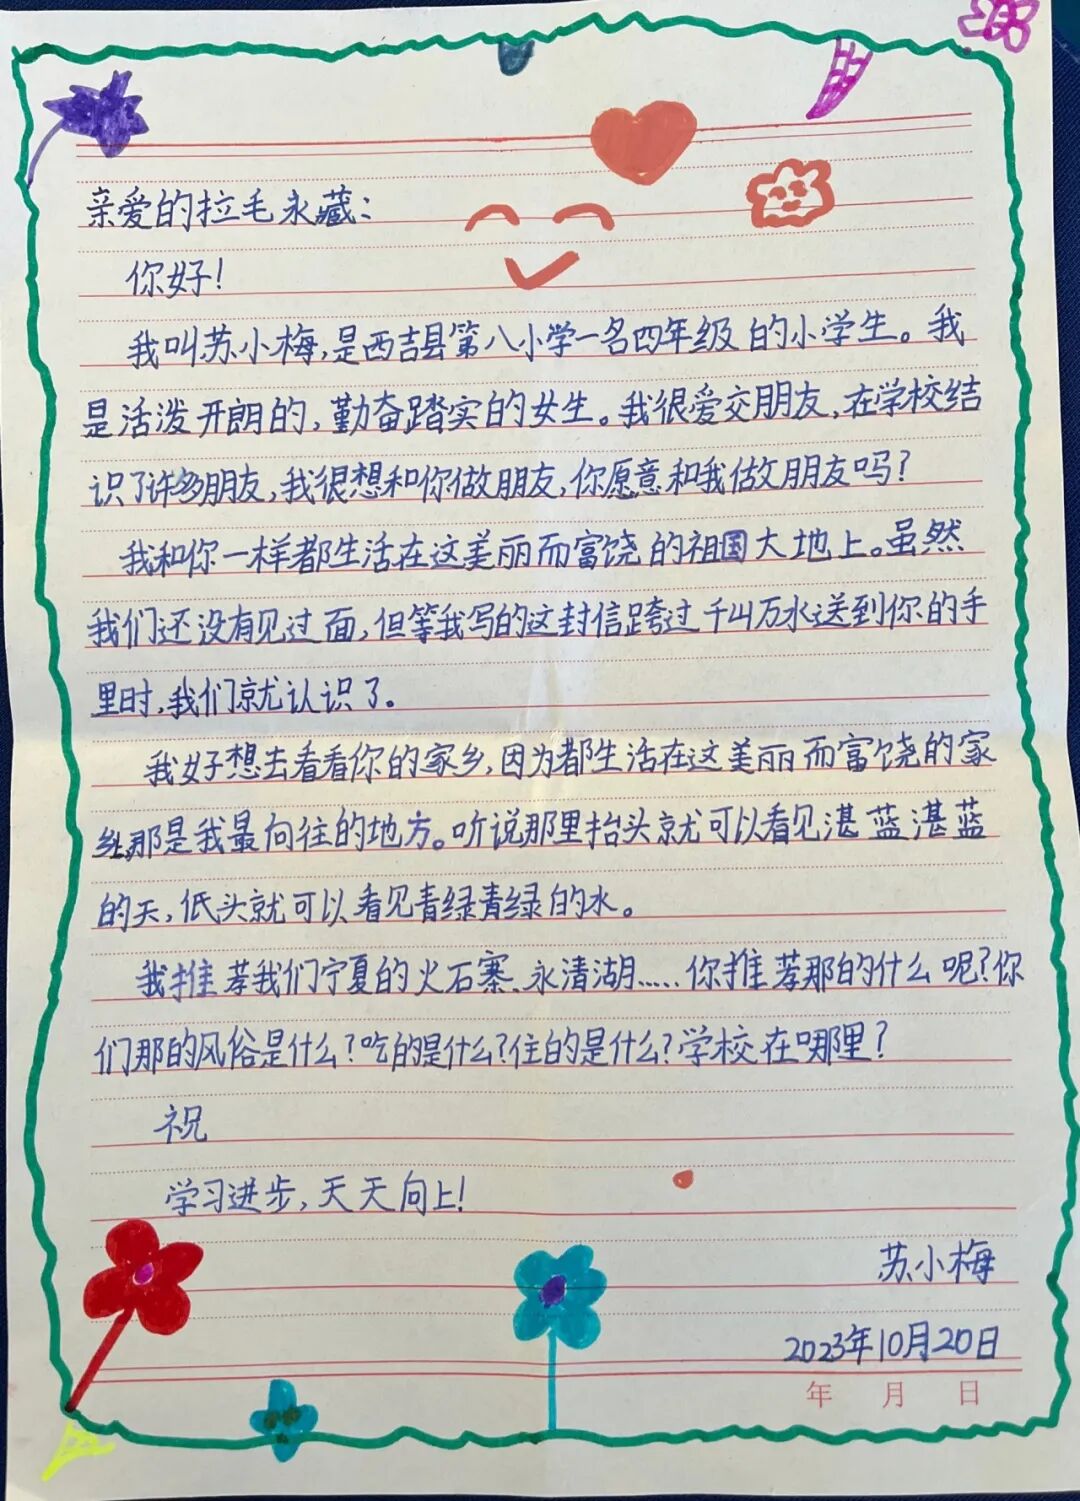 亲爱的拉毛永藏：
你好！
我叫苏小梅，是西吉县第八小学一名四年级的小学生。我
是活泼开朗的，勤奋踏实的女生。我很爱交朋友，在学校结
识了许多朋友，我很想和你做朋友，你愿意和我做朋友吗？
我和你一样都生活在这美丽而富饶的祖国大地上。虽然
我们还没有见过面，但等我写的这封信跨过千山万水送到你的手
里时，我们就认识了。
我好想去看看你的家乡，因为都生活在这美丽而富饶的家
乡，那是我最向往的地方。听说那里抬头就可以看见湛蓝湛蓝
的天，低头就可以看见青绿青绿的水。
我推荐我们宁夏的火石寨、永清湖……你推荐那的什么呢？你
们那的风俗是什么？吃的是什么？住的是什么？学校在哪里？
祝
学习进步，天天向上！
苏小梅
2023年10月20日
年 月 日